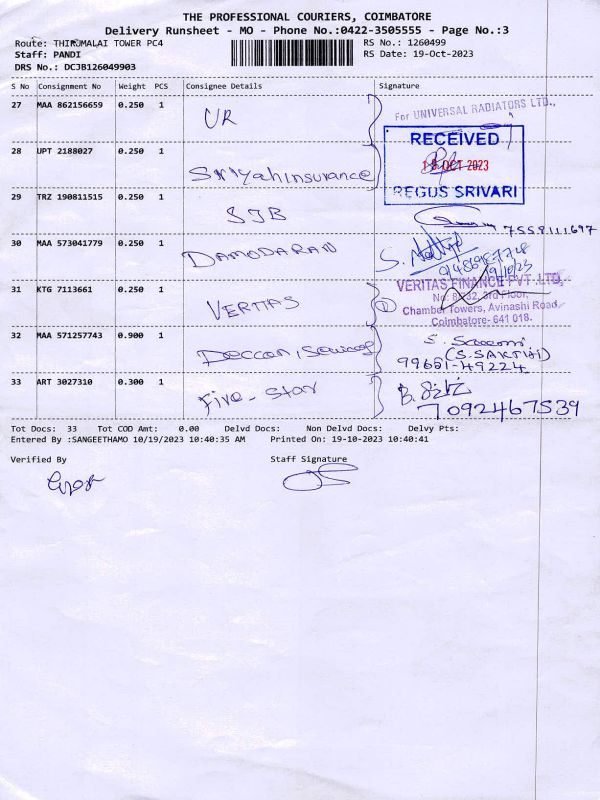 THE PROFESSIONAL COURIERS, COIMBATORE
Delivery Runsheet - MO - Phone No.:0422-3505555 - Page No.:3
Route: THIRUMALAI TOWER PC4 RS No.: 1260499
Staff: PANDI RS Date: 19-Oct-2023
DRS No.: DCJB126049903
S No Consignment No Weight PCS Consignee Details Signature
27 MAA 862156659 0.250 1 UR For UNIVERSAL RADIATORS LTD.,
RECEIVED
OCT 2023
REGUS SRIVARI
28 UPT 2188027 0.250 1 Sriyah insurance
29 TRZ 190811515 0.250 1 SIB 7558111697
30 MAA 573041779 0.250 1 DAMODARAN
19/10/23
31 KTG 7113661 0.250 1 VERITAS
VERITAS FINANCE PVT. LTD.,
3rd Floor,
Chamber Towers, Avinashi Road
Coimbatore- 641 018.
32 MAA 571257743 0.900 1 Deccan, Services
(S. SAKTHI)
99651-49224
33 ART 3027310 0.300 1 Five-Star
7092467539
Tot Docs: 33 Tot COD Amt: 0.00 Delvd Docs: Non Delvd Docs: Delvy Pts:
Entered By :SANGEETHAMO 10/19/2023 10:40:35 AM Printed On: 19-10-2023 10:40:41
Verified By Staff Signature